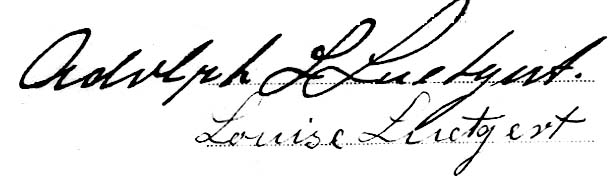 Adolph L Luetgert.
Louise Luetgert